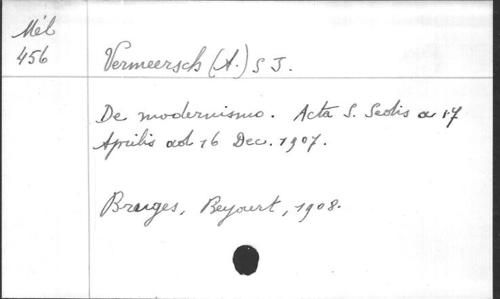 Mél
456
Vermeersch (A.) S J.
De modernismo. Acta S. Sedis a 17
Aprilis ad 16 Dec. 1907.
Bruges, Beyaert, 1908.